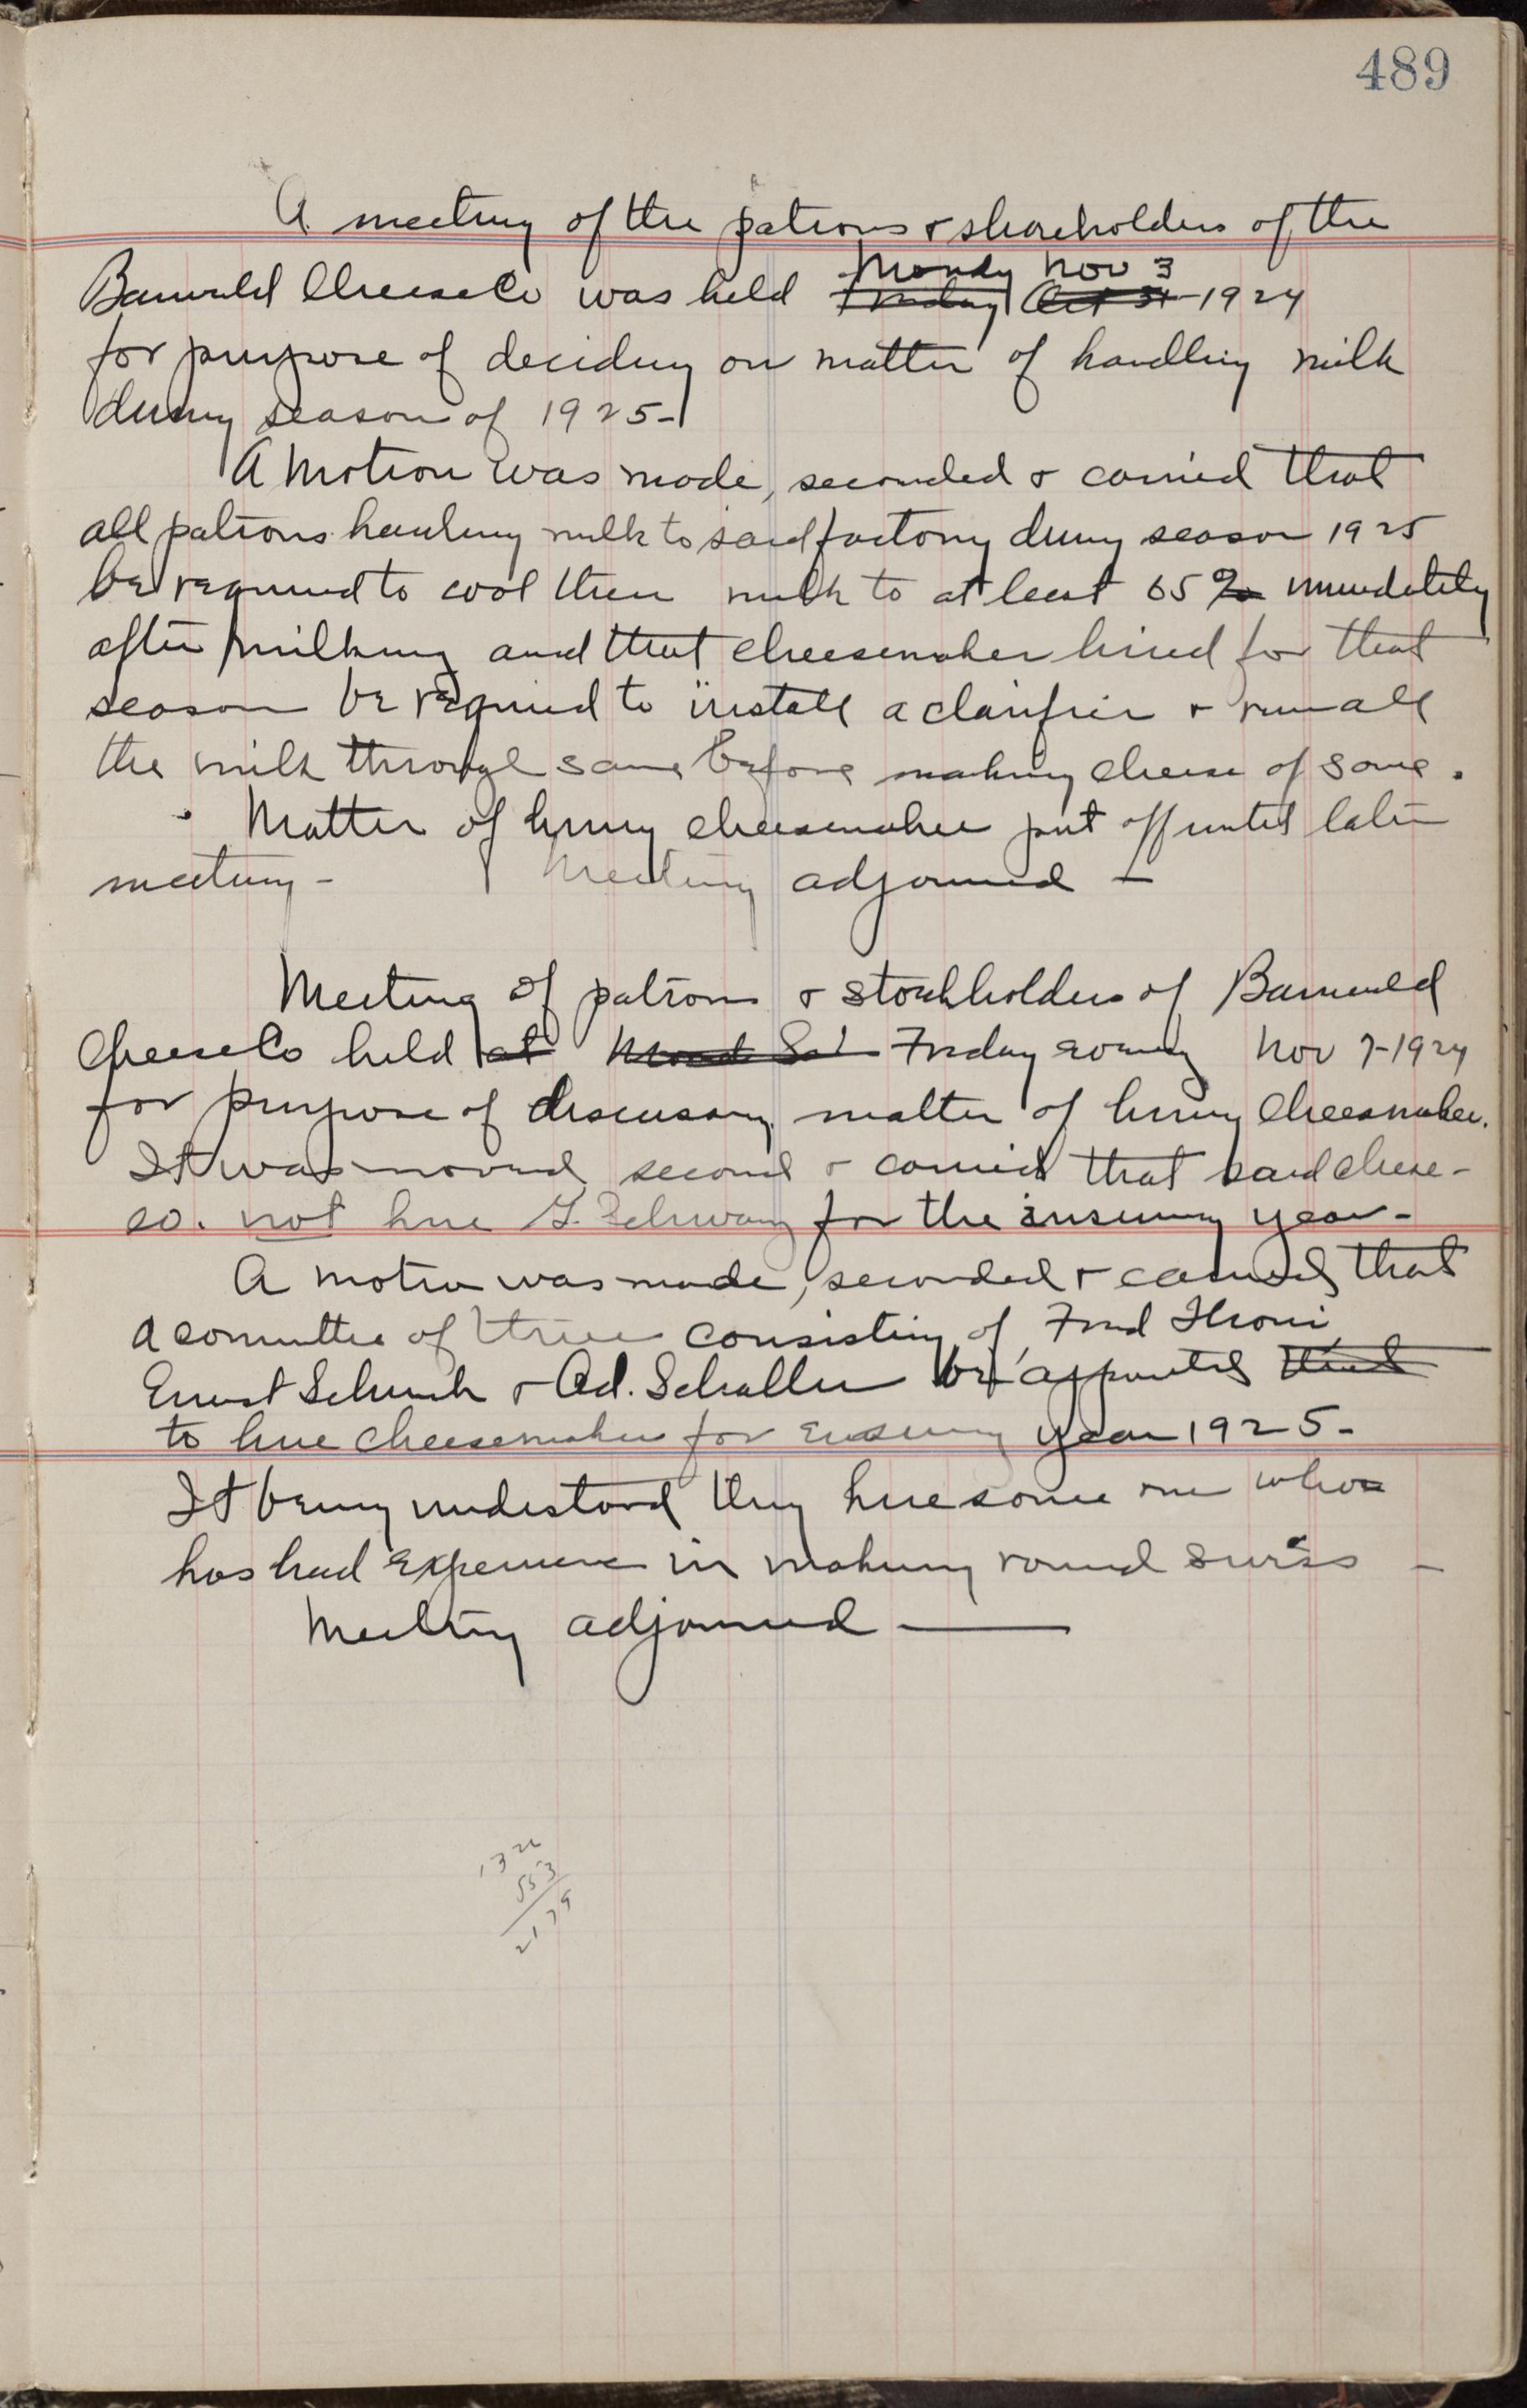 489
A meeting of the patrons & shareholders of the
Monday Nov 3
Barneveld Cheese Co was held Friday Oct 31 - 1924
for purpose of deciding on matter of handling milk
during season of 1925-
A motion was made, seconded & carried that
all patrons hauling milk to said factory during season 1925
be required to cool their milk to at least 65 % immediately
after milking and that cheesemaker hired for that
season be required to install a clarifier & run all
the milk through same before making cheese of same.
Matter of hiring cheesemaker put off until later
meeting - Meeting adjourned -
Meeting of patrons & stockholders of Barneveld
Cheese Co held at Sat Friday evening Nov 7-1924
for purpose of discussing matter of hiring Cheesemaker.
It was moved second & carried that said cheese-
co. not hire G. Schwarz for the insuing year-
A motion was made, seconded & carried that
a committee of three consisting of Fred Thoni,
Ernest Schenk & Ad. Schaller be appointed that
to hire cheesemaker for ensuing year 1925-
It being understood they hire some one who
has had experience in making round swiss -
Meeting adjourned -
132
553
2179